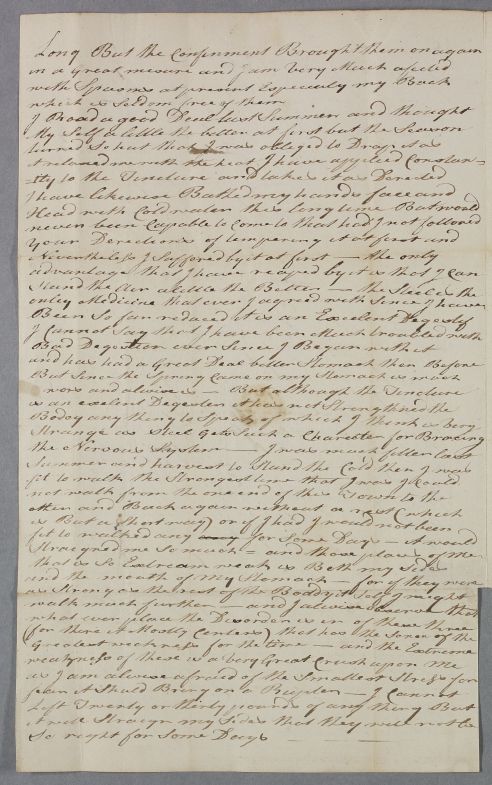 Long But the Confinment Brought them on again
in a Great mesure and I am Very Much aflicted
with Spasoms at present Especialy my Back
which is Seldom free of them
I Road a good Deal last Summer and thought
My Self a little the better at first but the Season
turned So hot that I was obleged to Drop it as
it relaxed me with the heat I have applied Constan-
-tly to the Tincture and takes it as Derected
I have likewise Bathed my hands face and
Head with Cold water this long time But would
never been Capable to Come to that had I not followed
Your Derections of tempering it at first and
Nevertheless I Suffored by it at first — the only
advantage that I have reaped by it is that I Can
Stand the Air a little the Better — the Steel is the
only Medicine that ever I agreed with Since I have
Been So far reduced it is an Excelent Degestef
I Cannot Say that I have been Much troubled with
Bad Degestion ever Since I Began with it
and has had a Great Deal better Stomach then Before
But Since the Spring Came on my Stomach is much
worse — But although the Tincture
is an exelent Degester it has not Strengthned the
Body any thing to Speak of which I think is very
Strange as Steel Gets Such a Charecter for Braceing
the Nervous System — I was much better last
Summer and harvest to Stand the Cold then I was
fit to walk the Strongest time that I was I Could
not walk from the one end of this Town to the
other and Back again without a rest (which
is But a Short way) or if I had I would not been
fit to walked any for Some Days — it would
Straegned me So much — and those places of Me
that is So Extream weak is Both my Sides
and the mouth of My Stomach — for if they were
as Strong as the rest of the Boddy it Self I might
walk much further — and I alwise observe that
what ever place the Disorder is in of these three
(for there it Mostly Centers) that has the Sorest of the
Greatest weakness for the time — and the Extreme
weakness of these is a very Great Crush upon Me
as I am alwise afraid of the Smallest Stress for
fear it Should Bring on a — I Cannot
Lift Twenty or thirty pounds of any thing But
it will Straegn my Sides that they will not be
So right for Some Days